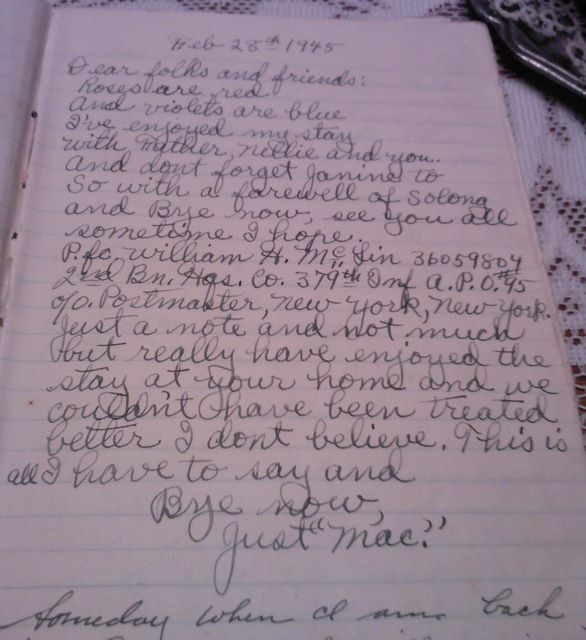 Feb 28th 1945
Dear folks and friends:
Roses are red
And violets are blue
I've enjoyed my stay
with Father, Nellie and you.
And dont forget Janine to
So with a farewell of Solong
and Bye now, see you all
sometime I hope.
P.f.c. William H. Mc Lin 36059804
2nd Bn. Hqs. Co. 379th Inf A.P.O. #95
c/o. Postmaster, New York, New York.
Just a note and not much
but really have enjoyed the
stay at your home and we
couldn't have been treated
better I dont believe. This is
all I have to say and
Bye now,
Just "Mac."
Someday when I am back